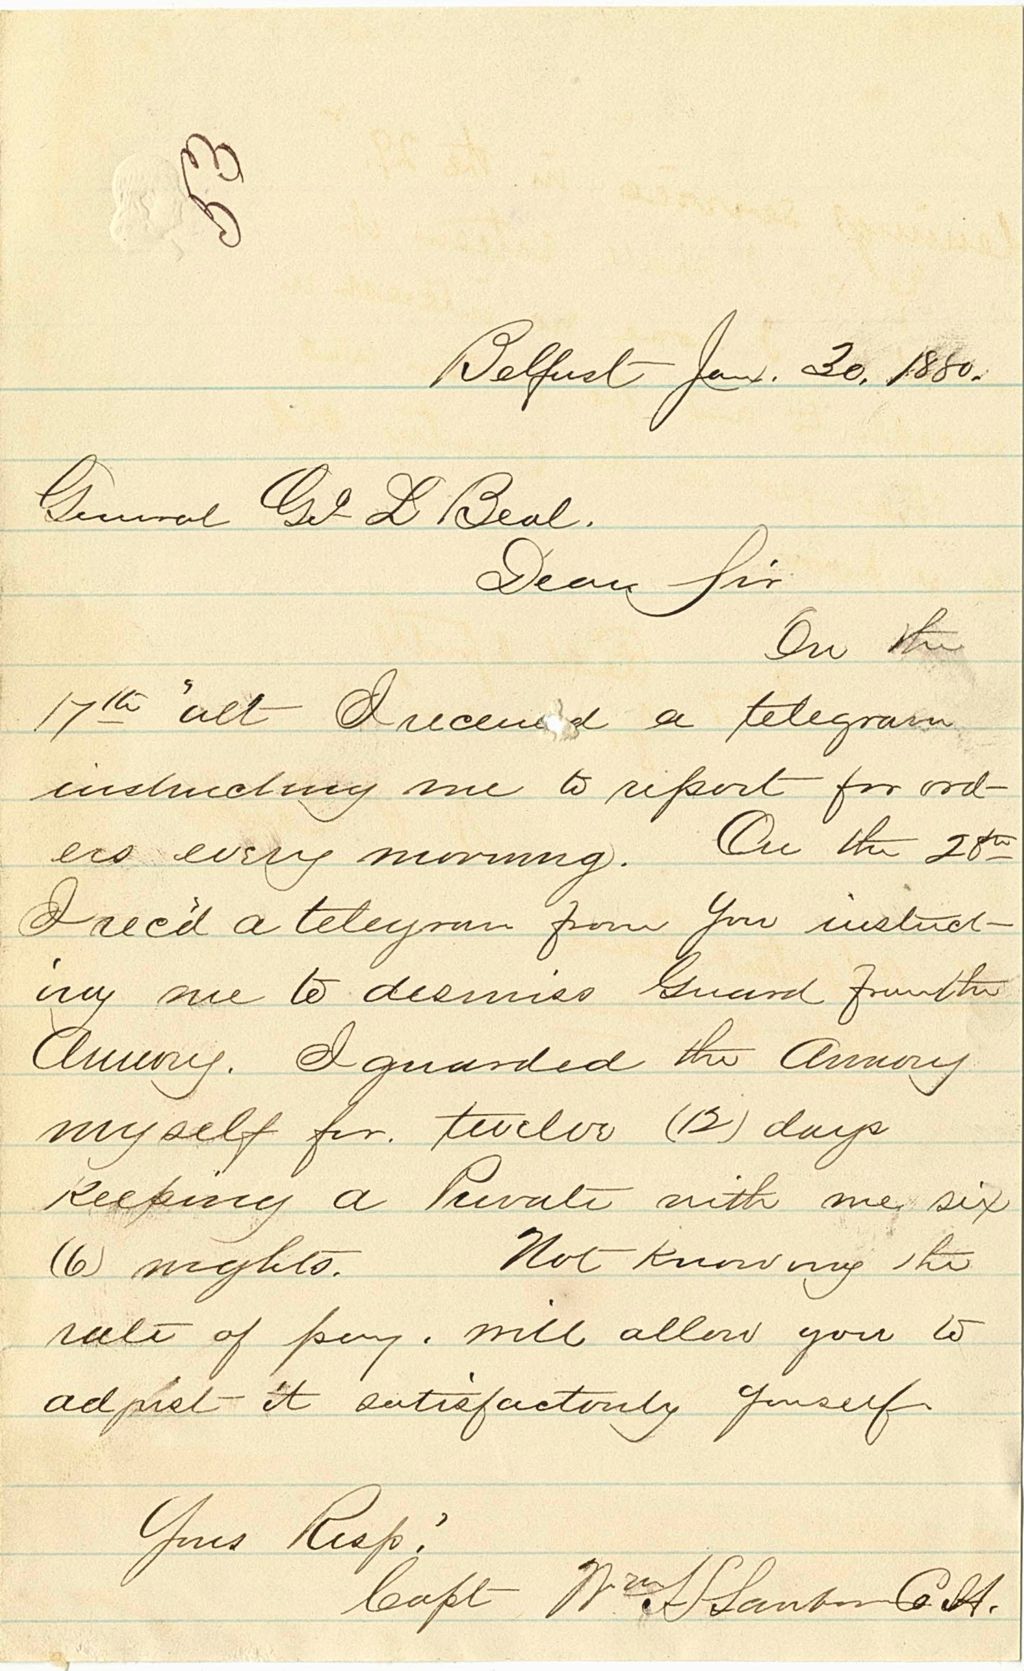 53
Belfast Jan. 30. 1880.
General Geo L Beal.
Dear Sir
On the
17th "ult I received a telegram
instructing me to report for ord-
ers every morning. On the 28th
I rec'd a telegram from you instruct-
ing me to dismiss Guard from the
Armory. I guarded the Armory
myself for. twelve (12) days
keeping a Private with me six
(6) nights. Not knowing the
rate of pay. will allow you to
adjust it satisfactorily yourself
Yours Resp.'
Capt Wm Sanborn